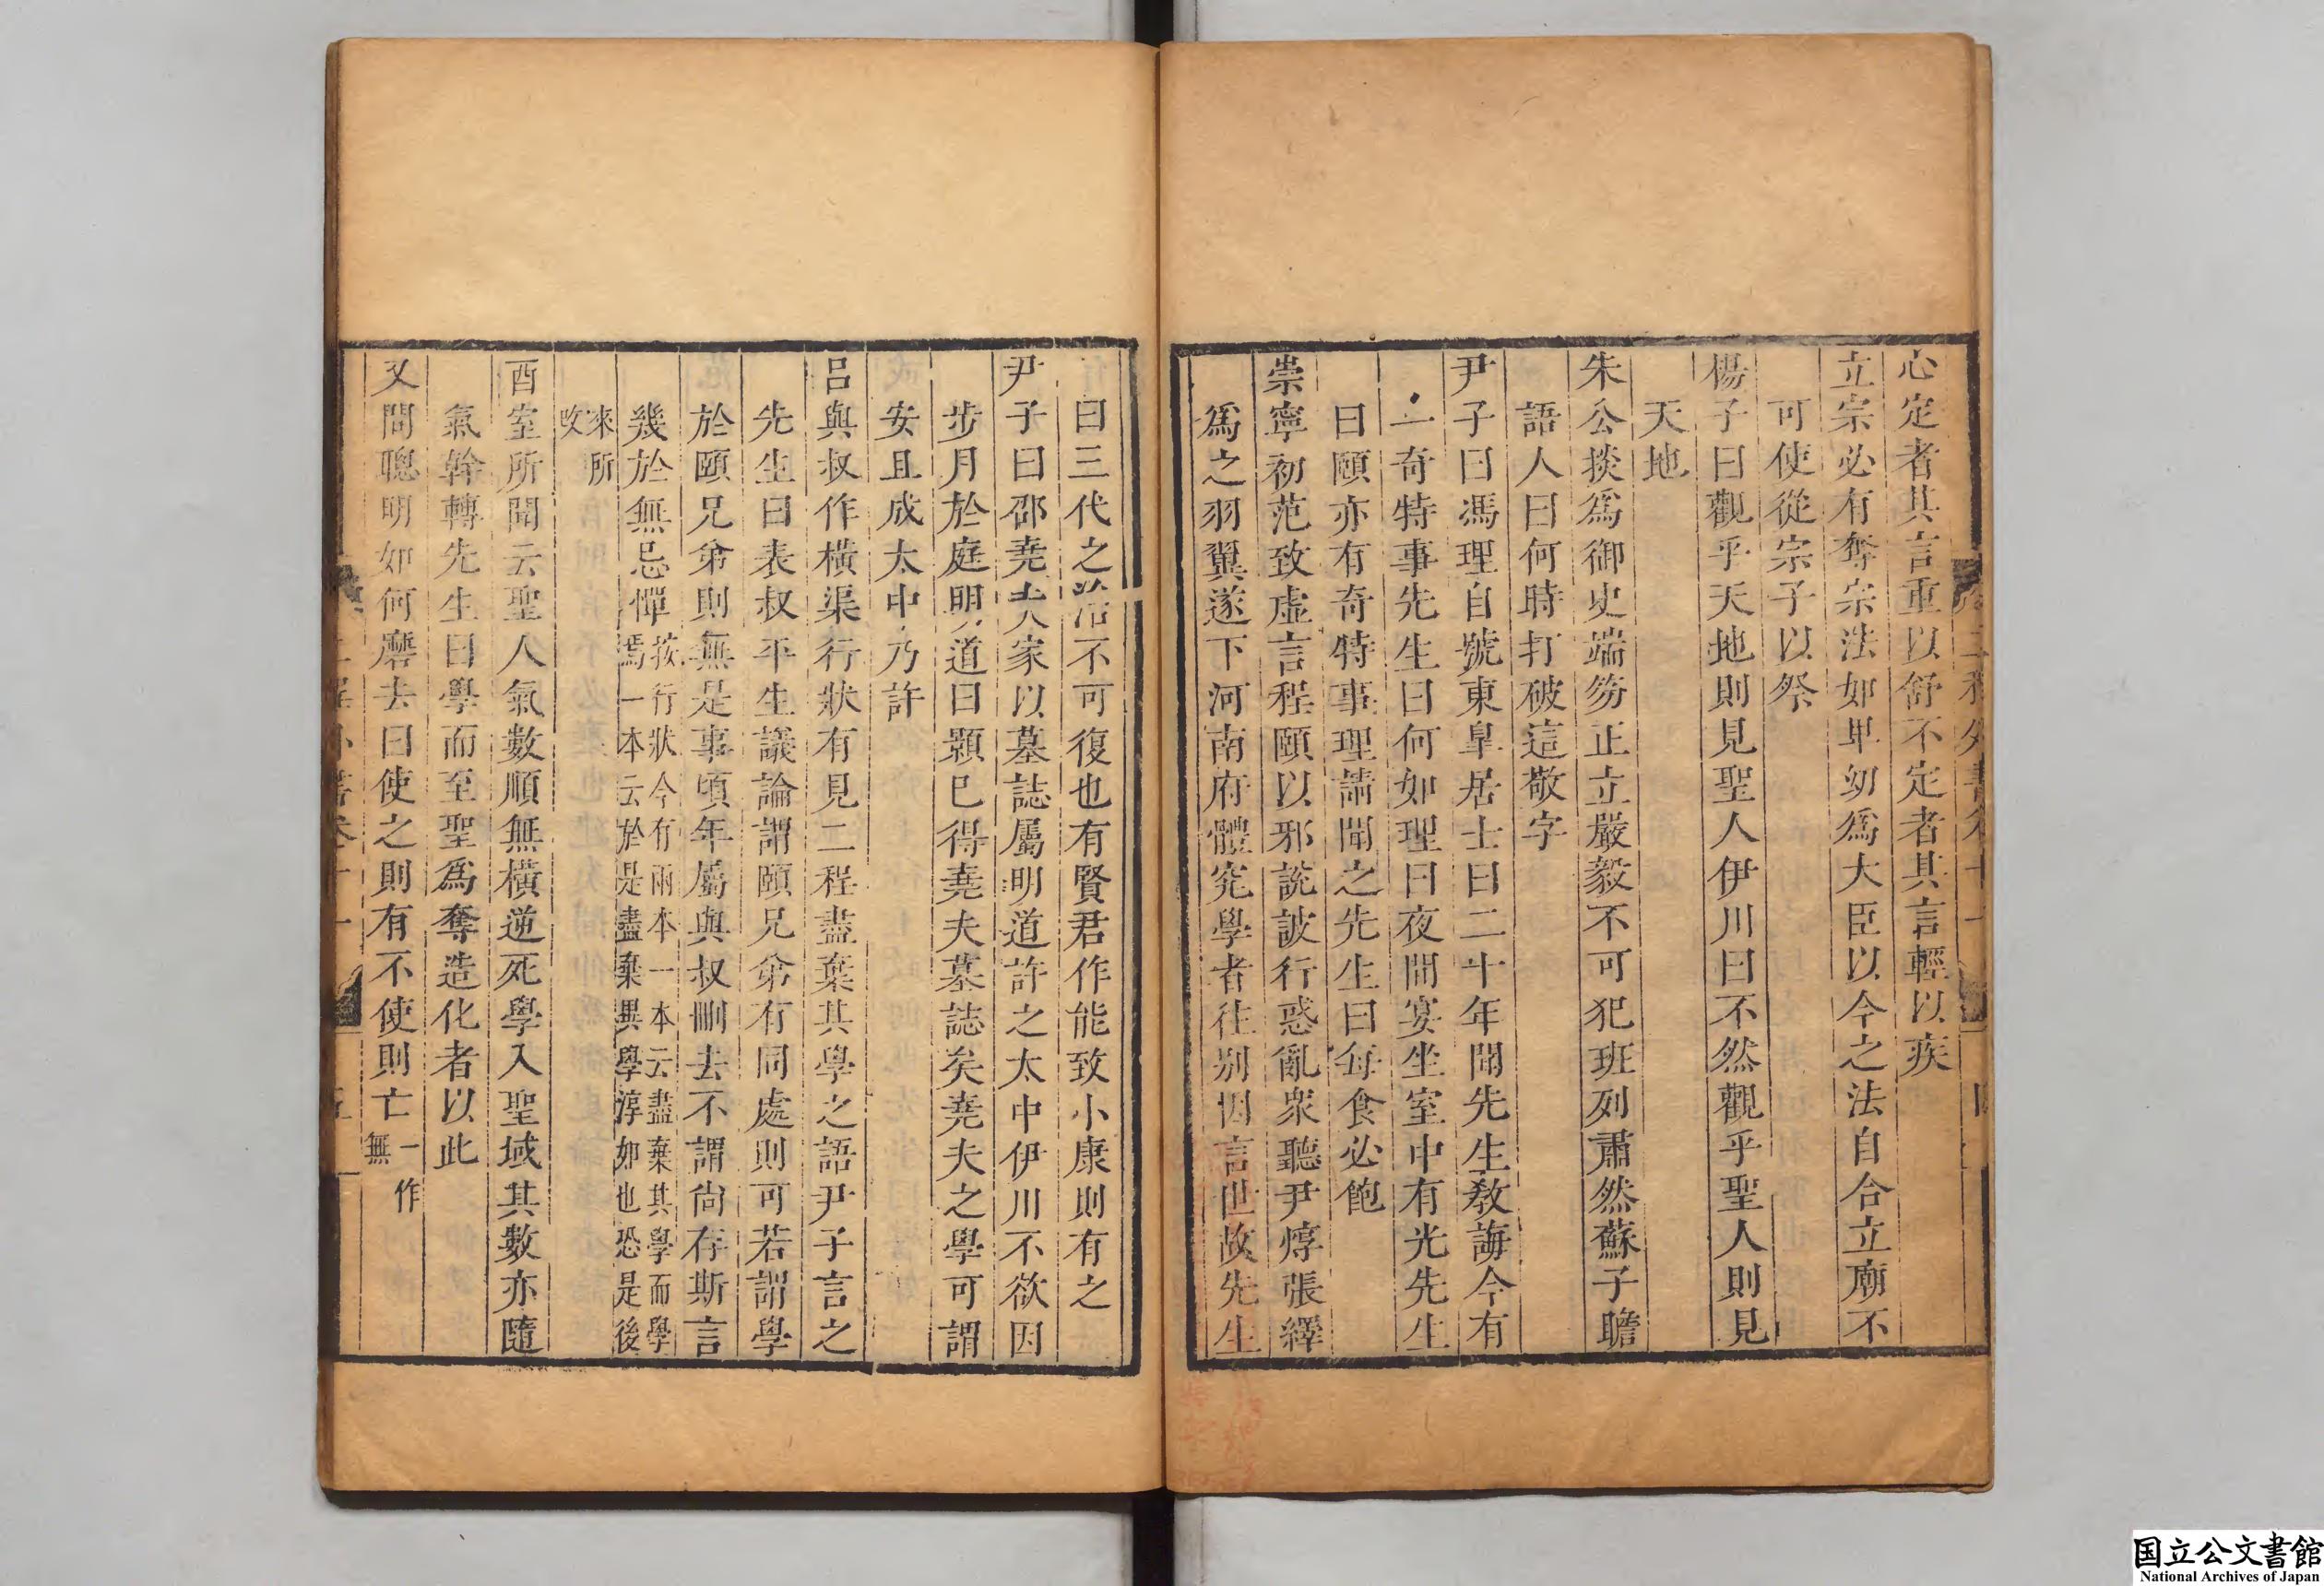 心定者其言重以舒不定者其言輕以疾
立宗必有奪宗法如卑幼爲大臣以今之法自合立廟不
可使從宗子以祭
楊子曰觀乎天地則見聖人伊川曰不然觀乎聖人則見
天地
朱公掞爲御史端笏正立嚴毅不可犯班列肅然蘇子瞻
語人曰何時打破這敬字
尹子曰馮理自號東臯居士曰二十年聞先生教誨今有
一奇特事先生曰何如理曰夜間宴坐室中有光先生
曰頤亦有奇特事理請聞之先生曰每食必飽
崇寧初范致虛言程頤以邪說詖行惑亂衆聽尹焞張繹
爲之羽翼遂下河南府體究學者往别因言世故先生
曰三代之治不可復也有賢君作能致小康則有之
尹子曰邵堯夫家以墓誌屬明道許之太中伊川不欲因
步月於庭明道曰顥已得堯夫墓誌矣堯夫之學可謂
安且成太中乃許
呂與叔作横渠行狀有見二程盡棄其學之語尹子言之
先生曰表叔平生議論謂頤兄弟有同處則可若謂學
於頤兄弟則無是事頃年屬與叔刪去不謂尙存斯言
幾於無忌憚按行狀今有兩本一本云盡棄其學而學
焉一本云於是盡棄異學淳如也恐是後
來所
改
酉室所聞云聖人氣數順無橫逆死學入聖域其數亦隨
氣幹轉先生曰學而至聖爲奪造化者以此
又問聰明如何磨去曰使之則有不使則亡一作
無